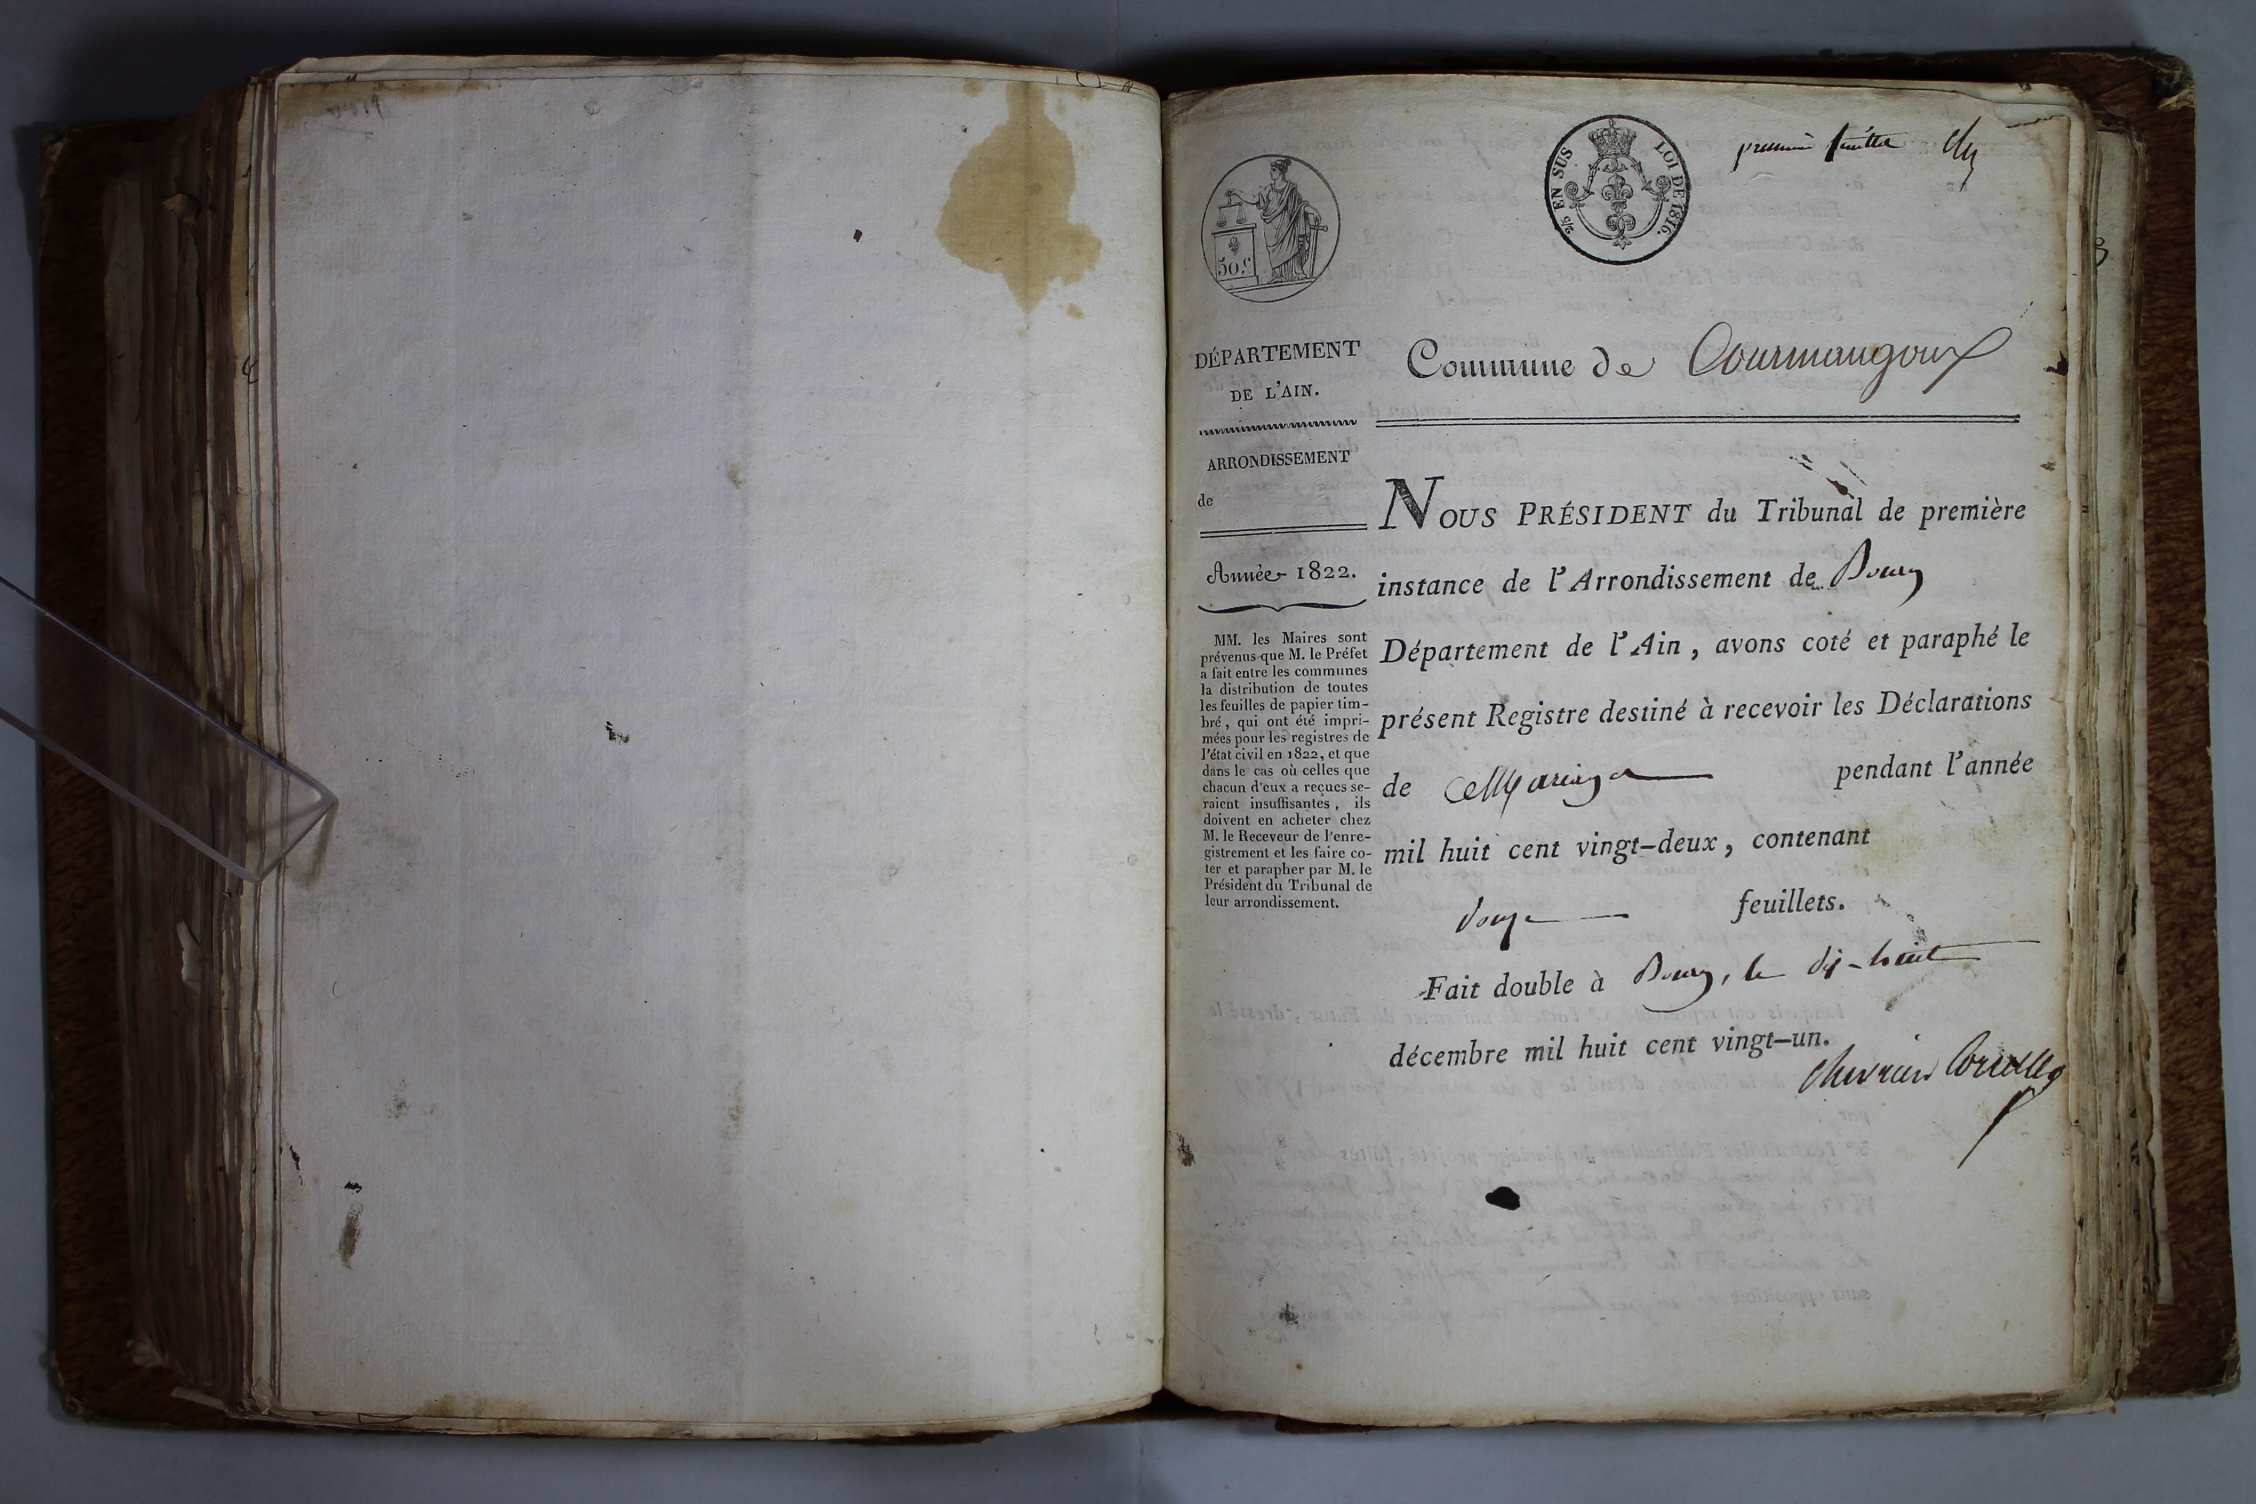 premier feuillet
2/5 EN SUS LOI DE 1816.
50.c
DÉPARTEMENT
DE L'AIN.
ARRONDISSEMENT
de
Année 1822.
MM. les Maires sont
prévenus que M. le Préfet
a fait entre les communes
la distribution de toutes
les feuilles de papier tim-
bré, qui ont été impri-
mées pour les registres de
l'état civil en 1822, et que
dans le cas où celles que
chacun d'eux a reçues se-
raient insuffisantes, ils
doivent en acheter chez
M. le Receveur de l'enre-
gistrement et les faire co-
ter et parapher par M. le
Président du Tribunal de
leur arrondissement.
Commune de Courmangoux
NOUS PRÉSIDENT du Tribunal de première
instance de l'Arrondissement de Bourg
Département de l'Ain, avons coté et paraphé le
présent Registre destiné à recevoir les Déclarations
de Mariage pendant l'année
mil huit cent vingt-deux, contenant
douze feuillets.
Fait double à Bourg, le dix-huit
décembre mil huit cent vingt-un.